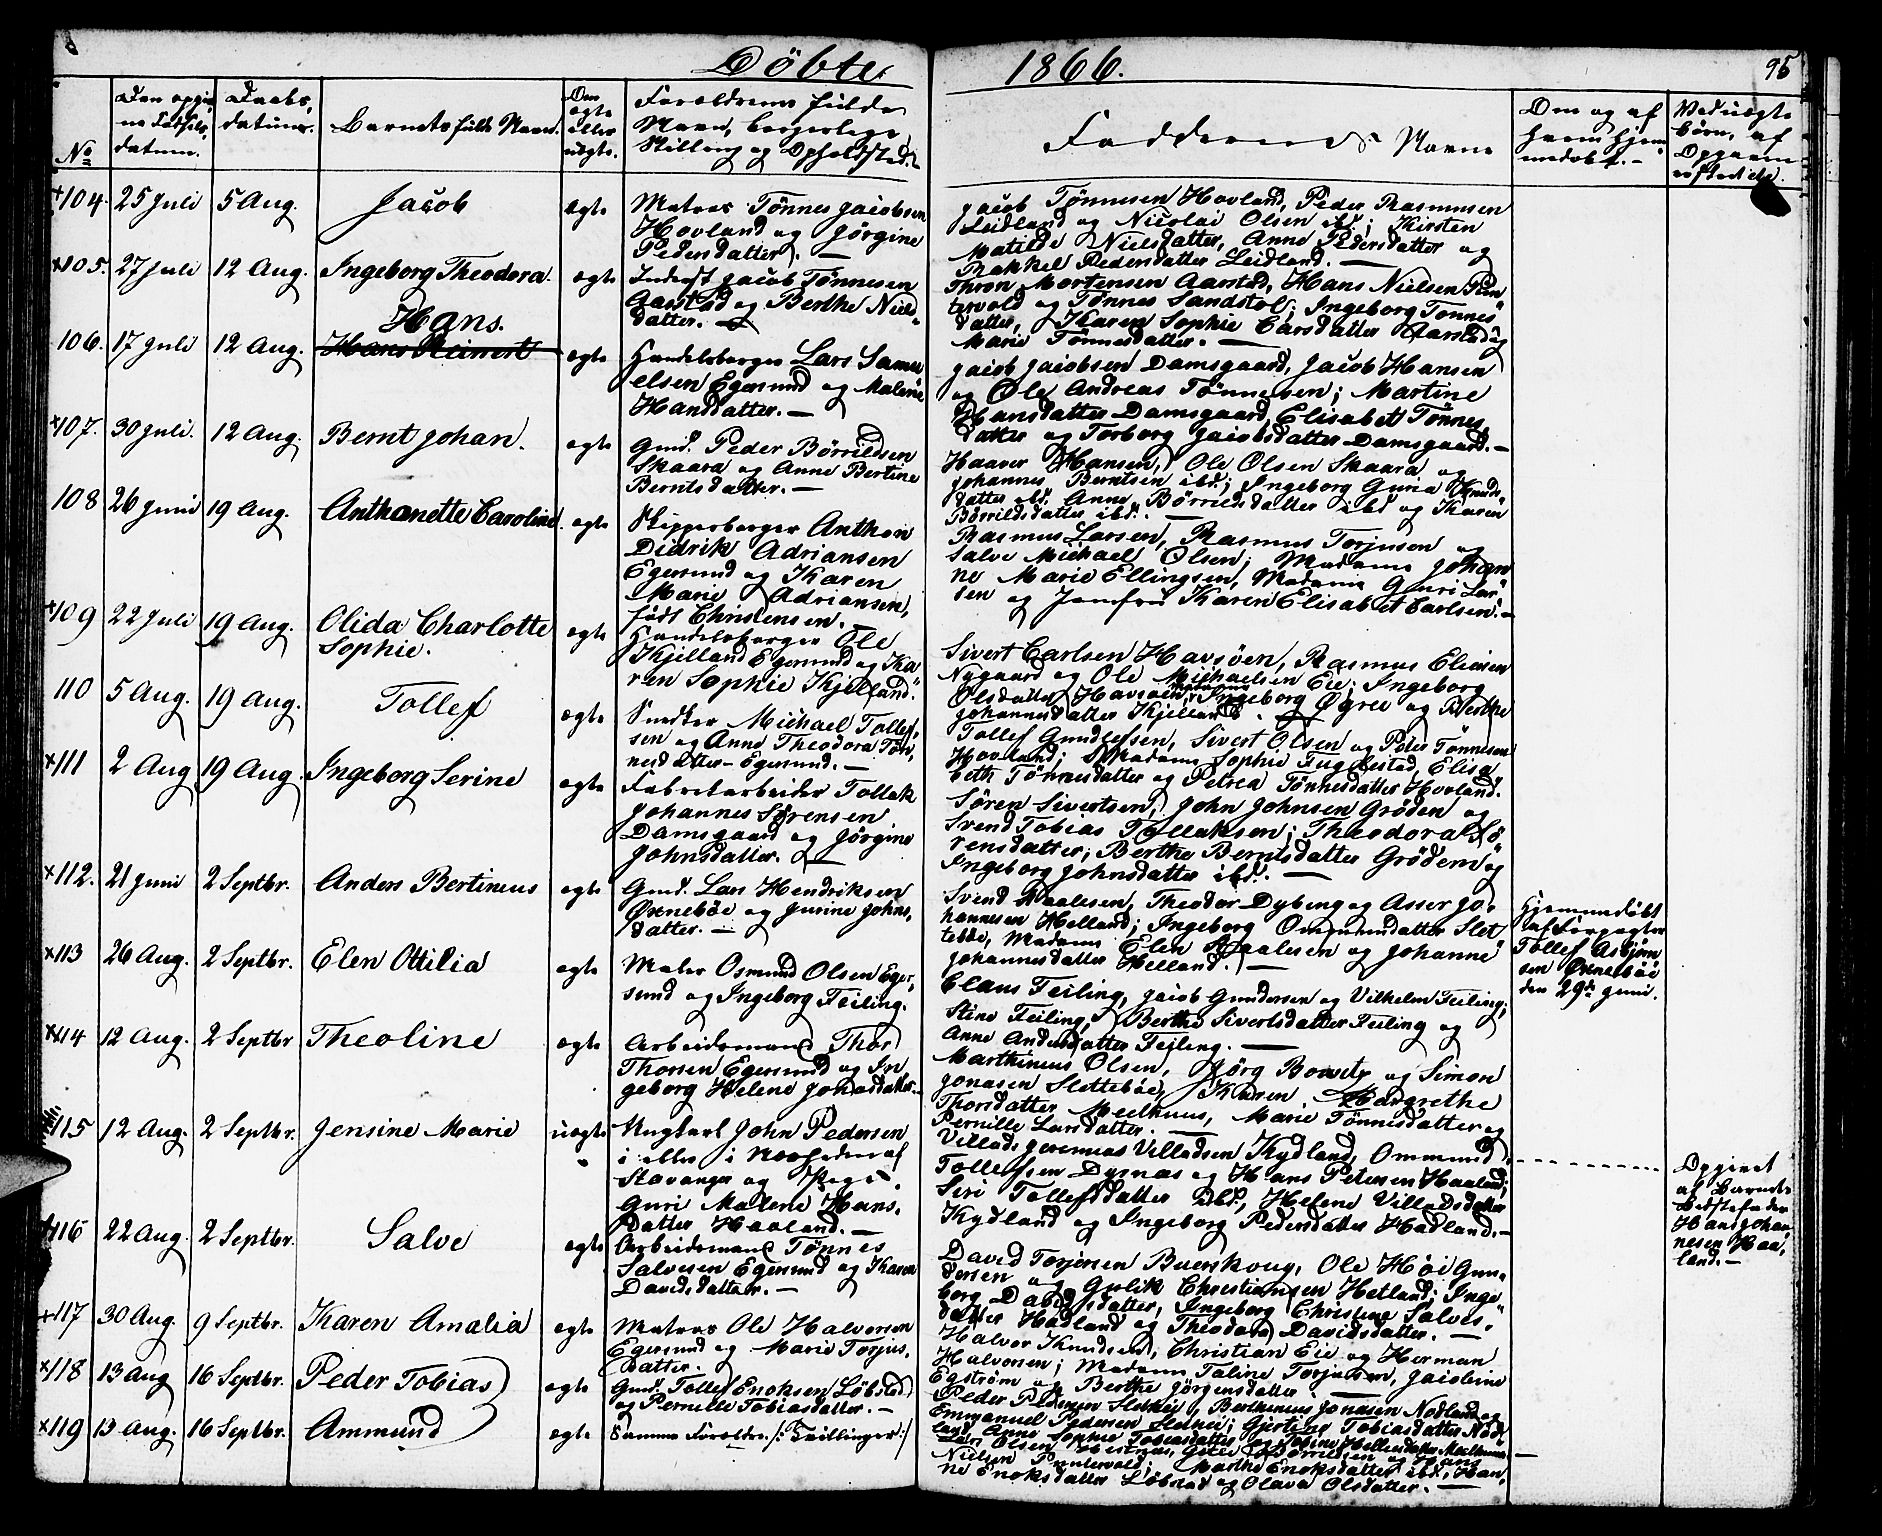 Döbte 1866. 95
No
Den opgivne Fødsels datum.
Daabs datum.
Barnets fulde Navn.
Om ægte eller uægte.
Forældrenes fulde Navn, borgerlige Stilling og Opholdsted.
Faddernes Navne
Om og af hvem hjemmedøbt.-
Ved uægte Børn, af Opgaven
104. 25 Juli 5 Aug. Jacob ægte
Matros Tönnes Jacobsen
Hovland og Jörgine
Pedersdatter. —
Jacob Tönnesen Hovland, Peder Rasmusen
Leidland og Nicolai Olsen ibd; Kirsten
Matilde Nielsdatter, Anne Pedersdatter og
Rakkel Pedersdatter Leidland. —
105. 27 Juli 12 Aug. Ingeborg Theodora. ægte
Inderst Jacob Tönnesen
Aarstad og Berthe Niels-
datter. —
Mortensen Aarstad, Hans Nielsen Pun
tervold og Tönnes Sandstöl; Ingeborg Tönnes
datter, Karen Sophie Larsdatter Aarstad og
Marie Tönnesdatter. —
Hans.
106. 17 Juli 12 Aug. Hans Reinert ægte
Handelsborger Lars Samu
elsen Egersund og Malene
Hansdatter. —
Jacob Jacobsen Damsgaard, Jacob Hansen
og Ole Andreas Tönnesen; Martine
Hansdatter Damsgaard, Elisabeth Tönnes
datter og Torborg Jacobsdatter Damsgaard. —
107. 30 Juli. 12 Aug. Bernt Johan. ægte
Gmd. Peder Börrildsen
Skaara og Anne Bertine
Berntsdatter. —
Haaver Hansen, Ole Olsen Skaara og
Johannes Berntsen ibd.; Ingeborg Guria Knuds
datter ibd. Anne Börrildsdatter ibd og Karen
Börrildsdatter ibd. —
108 26 Juni 19 Aug. Anthonette Caroline. ægte
Skipperborger Anthon
Didrik Adriansen
Egersund og Karen
Marie Adriansen,
født Christensen.
Rasmus Larsen, Rasmus Torjusen og
Salve Michael Olsen; Madame Johan
ne Marie Ellingsen, Madame Guri Lar
sen og Jomfru Karen Elisabet Carlsen. —
109 22 Juli 19 Aug. Olida Charlotte ægte
Sophie.
Handelsborger Ole
Kjelland Egersund og Ka
ren Sophie Kjelland.
Sivert Carlsen Havsöen, Rasmus Eliasen
Nygaard og Ole Michaelsen Eie; Ingeborg
Olsdatter Havsöen, Ingeborg Øgree og Berthe
Johannesdatter Kjelland.
110 5 Aug. 19 Aug. Tollef ægte
Snedker Michael Tollef-
sen og Anne Theodora Tön
nesdatter Egersund. —
Tollef Gundlefsen, Sivert Olsen og Peder Tönnesen
Hovland; Madame Sophie Fuglestad, Elisa
beth Tönnesdatter og Petrea Tönnesdatter Hovland.
111 2 Aug 19 Aug. Ingeborg Serine ægte
Fabrikarbeider Tollak
Johannes Sörensen
Damsgaard og Jörgine
Johnsdatter. —
Sören Sivertsen, John Johnsen Gröden og
Svend Tobias Tollaksen; Theodora Sö
rensdatter, Berthe Berntsdatter Grödem og
Ingeborg Johnsdatter ibd. —
112. 21 Juni 2 Septbr. Anders Bertineus ægte
Gmd. Lars Hendriksen
Ørneböe og Jusine Johns
datter. —
Svend Paalesen, Theodor Dybing og Asser Jo-
hannesen Helland; Ingeborg Ommundsdatter Slet
tebö, Madame Elen Paalesen og Johanne
Johannesdatter Helland. —
Hjemmedöbt
af Forpagter
Tollef Asbjörn
sen Ørneböe
den 29de Juni.
113 26 Aug. 2 Septbr. Elen Ottilia ægte
Maler Osmund Olsen Eger-
sund og Ingeborg Feiling.
Claus Feiling, Jacob Gundersen og Vilhelm Feiling;
Stine Feiling, Berthe Sivertsdatter Feiling og
Anne Andersdatter Feiling. —
114 12 Aug. 2 Septbr Theoline ægte
Arbeidsmand Thor
Thorsen Egersund og In
geborg Helene Jonasdatter. —
Marthinius Olsen, Jörg Bowitz og Simon
Jonasen Sletteböe, Karen Margrethe
Thorsdatter Meelhuus, Marie Tönnesdatter og
Pernille Larsdatter. —
115 12 Aug. 2 Septbr. Jensine Marie uægte
Ungkarl John Pedersen
i eller i Nærheden af
Stavanger og Pige
Guri Malene Hans-
datter Haaland. —
Villads Jeremias Villadsen Kydland, Ommund
Tollefsen Dysnas og Hans Petersen Haaland;
Siri Tollefsdatter ibd, Helene Villadsdatter
Kydland og Ingeborg Pedersdatter Hadland. —
Opgivet
af Barnets
Bedstefader
Hans Johan
nesen Haa-
land. —
116 22 Aug. 2 Septbr. Salve ægte
Arbeidsmand Tönnes
Salvesen Egersund og Karen
Davidsdatter. —
David Torjersen Buerskoug, Ole Höi Gun-
dersen og Gulik Christiansen Hetland; Inge
borg Davidsdatter, Ingeborg Christine Salves-
datter Hadland og Theodora Davidsdatter. —
117 30 Aug. 9 Septbr. Karen Amalia ægte
Matros Ole Halvorsen
Egersund og Marie Torjus-
datter.
Halvor Knudsen, Christian Eie og Herman
Halvorsen; Madame Taline Torjusen,
Egström og Berthe Jörgensdatter. —
118 13 Aug 16 Septbr. Peder Tobias ægte
Gmd. Tollef Enoksen Löbstad
og Pernille Tobiasdatter. —
Peder Pedersen Slethei, Berthinius Jonasen Nodland og
Emmanuel Pedersen Slethei; Gjertine Tobiasdatter Nod
land, Anne Sophie Tobiasdatter og Tobine
119 13 Aug. 16 Septbr. Ammund ægte
Samme Forældre /: Tvillinger :/
Lars Olsen Hestnæs, Börrildsen og Hans
Nielsen Puntervold; Marthe Enoksdatter ibd, Han-
ne Enoksdatter Löbstad og Olava Olsdatter. —